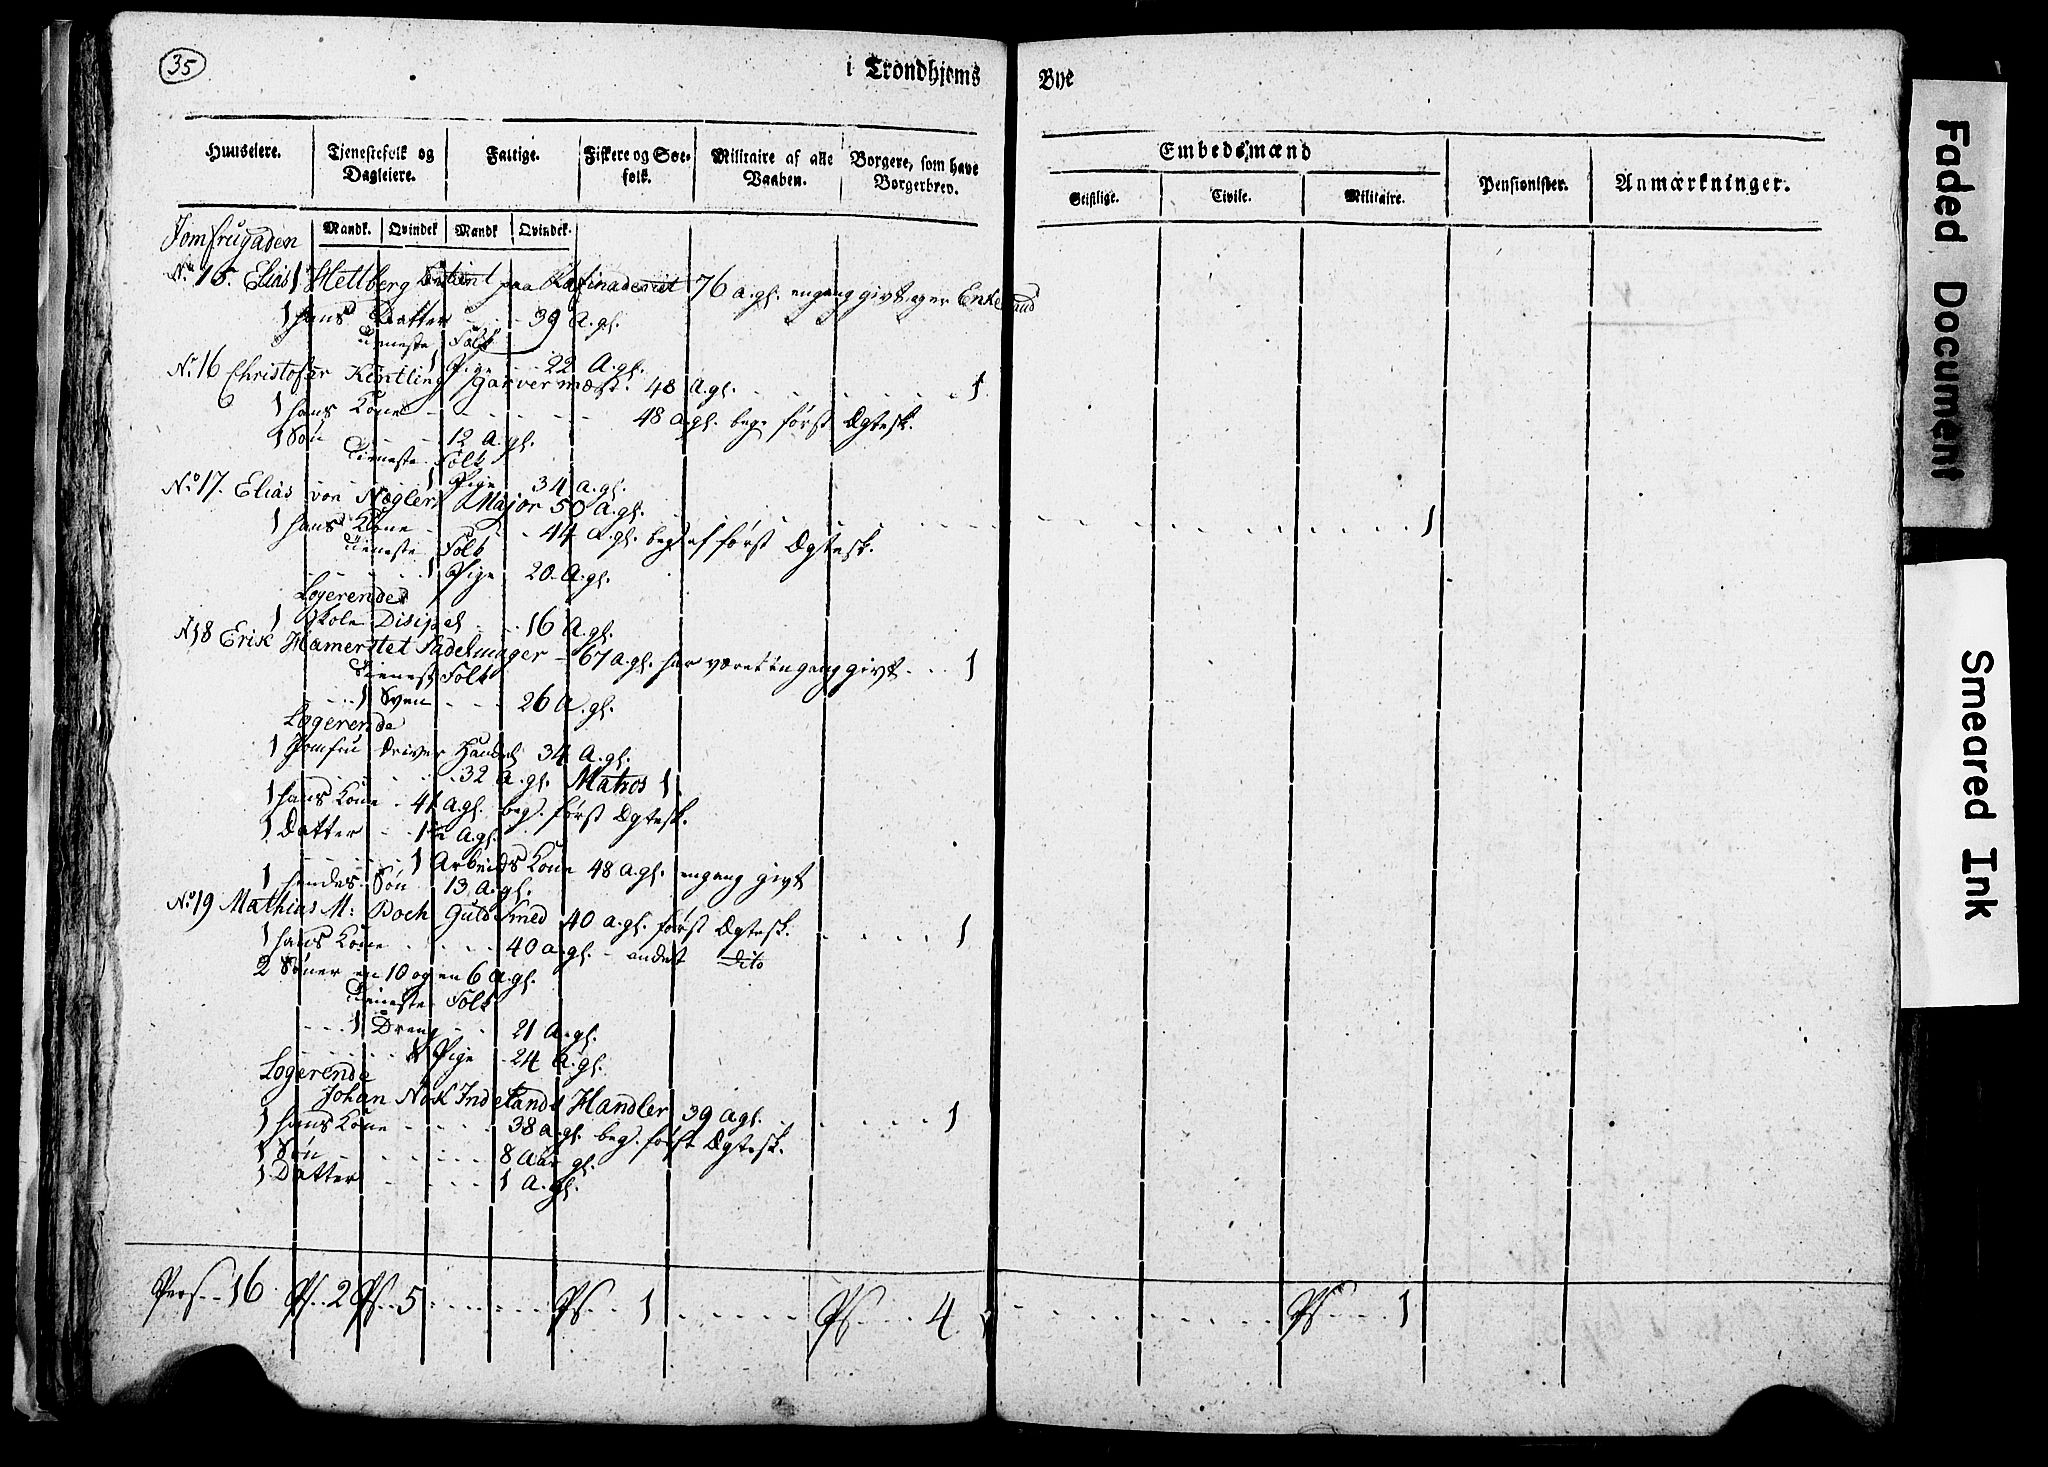 35
i Trondhjems Bye
Huuseiere. Tjenestefolk og Dagleiere. Fattige. Fiskere og Søe-folk. Militaire af alle Vaaben. Borgere, som have Borgerbrev. Embedsmænd Pensionister. Anmærkninger.
Geistlige. Civile. Militaire.
Mandk. Qvindek Mandk Qvindek.
Jomfrugaden
No 15. Elias Hettberg paa Rafinaderiet 76 a. gl. engang givt og er Enkemand
1 hans Datter - - 39 A. gl.
Tieneste Folk
1 Pige - - 22 A. gl.
No. 16 Christofer Kintling Garver mæst. 48 A. gl. 1
1 hans Kone - - - 48 a gl. beg. først Ægtesk.
1 Søn - - 12 A. gl.
Tieneste Folk
1 Pige 34 a. gl.
No. 17. Elias von Nøgler Major 50 A. gl. 1
1 hans Kone - - 44 A. gl. beg. af først Ægtesk.
Tieneste Folk
1 Pige 20 A. gl.
Logerende
1 Skole Disipel - - 16 A. gl.
No 18 Erik Hamerstet Sadelmager - 67 a. gl. har været engang givt - - 1
Tienest Folk
1 Sven - - - 26 A. gl.
Logerende
1 Jomfru driver Handel 34 A. gl.
- - - 32 A. gl. Matros 1
1 hans Kone - 41 A. gl. beg. først Ægtesk.
1 Datter - - 12 A. gl.
1 Arbeids Kone 48 A. gl. engang givt
1 hendes Søn 13 A. gl.
No. 19 Mathias M: Boch Guld Smed 40 a. gl. først Ægtesk. 1
1 hans Kone - - - 40 a. gl. - andet dito
2 Sønner en 10 og en 6 A. gl.
Tieneste Folk
1 Dreng - - 21 A. gl.
1 Pige - 24 A. gl.
Logerende
Johan Nok Indelands Handler 39 A gl. 1
1 hans Kone - - - 38 a. gl. beg. først Ægtesk.
1 Søn - - - 8 Aar gl.
1 Datter - - - 1 A. gl.
Pers. - 16 Ps. - 2 Ps. - 5 - - - Ps - - 1 - - - Ps - - - 4 - - - Ps - - - 1
Faded Document
Smeared Ink